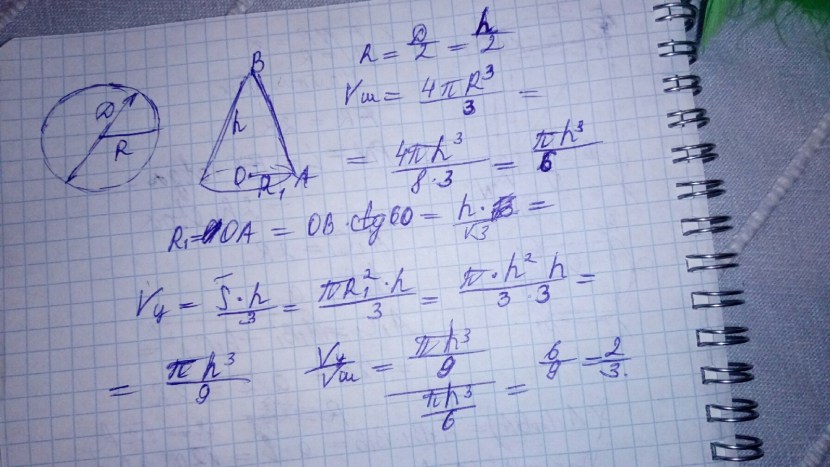 D
R
B
h
O
A
R₁
R = D/2 = h/2
Vш = 4πR³/3 =
= 4πh³/8·3 = πh³/6
R₁ = OA = OB · ctg60 = h/√3 =
Vу = S·h/3 = πR₁²·h/3 = π·h² h/3·3 =
= πh³/9
Vу/Vш = (πh³/9)/(πh³/6) = 6/9 = 2/3.